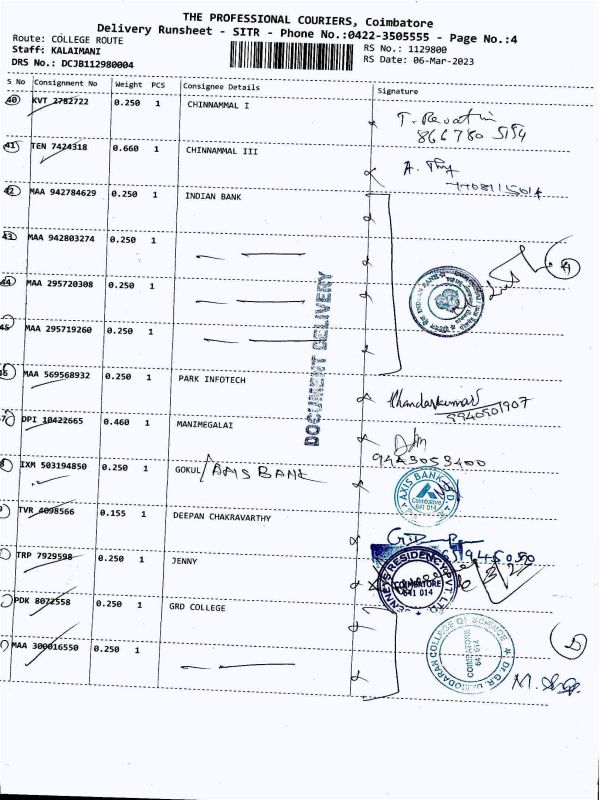 THE PROFESSIONAL COURIERS, Coimbatore
Delivery Runsheet - SITR - Phone No.:0422-3505555 - Page No.:4
Route: COLLEGE ROUTE
Staff: KALAIMANI
DRS No.: DCJB112980004
RS No.: 1129800
RS Date: 06-Mar-2023
S No Consignment No Weight PCS Consignee Details Signature
40 KVT 2782722 0.250 1 CHINNAMMAL I
41 TEN 7424318 0.660 1 CHINNAMMAL III
42 MAA 942784629 0.250 1 INDIAN BANK
43 MAA 942803274 0.250 1
44 MAA 295720308 0.250 1
45 MAA 295719260 0.250 1
DOCUMENT DELIVERY
46 MAA 569568932 0.250 1 PARK INFOTECH
9940501907
DPI 10422665 0.460 1 MANIMEGALAI
9443053400
IXM 503194850 0.250 1 GOKUL / AXIS BANK
AXIS BANK
Coimbatore
641 014
TVR 4098566 0.155 1 DEEPAN CHAKRAVARTHY
TRP 7929598 0.250 1 JENNY
RESIDENCY PVT. LTD.
COIMBATORE
641 014
PDK 8072558 0.250 1 GRD COLLEGE
MAA 300016550 0.250 1
Dr. G.R. DAMODARAN COLLEGE OF SCIENCE
COIMBATORE
641 014